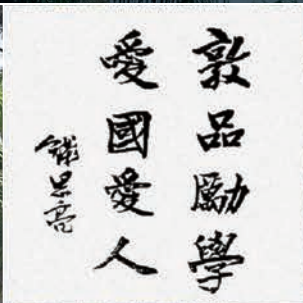 敦品勵學
愛國愛人
錢思亮